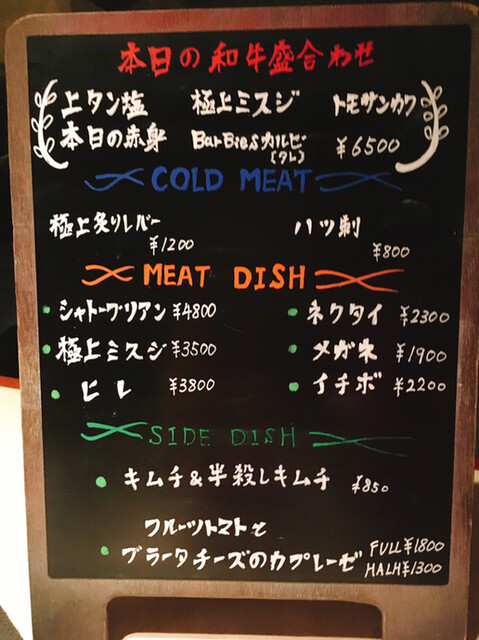 本日の和牛盛合わせ
上タン塩 極上ミスジ トモサンカク
本日の赤身 BarBiesカルビ ¥6500
(タレ)
COLD MEAT
極上炙りレバー ¥1200
ハツ刺 ¥800
MEAT DISH
シャトーブリアン ¥4800 ネクタイ ¥2300
極上ミスジ ¥3500 メガネ ¥1900
ヒレ ¥3800 イチボ ¥2200
SIDE DISH
キムチ&半殺しキムチ ¥850
フルーツトマトと
ブラータチーズのカプレーゼ FULL¥1800
HALH¥1300